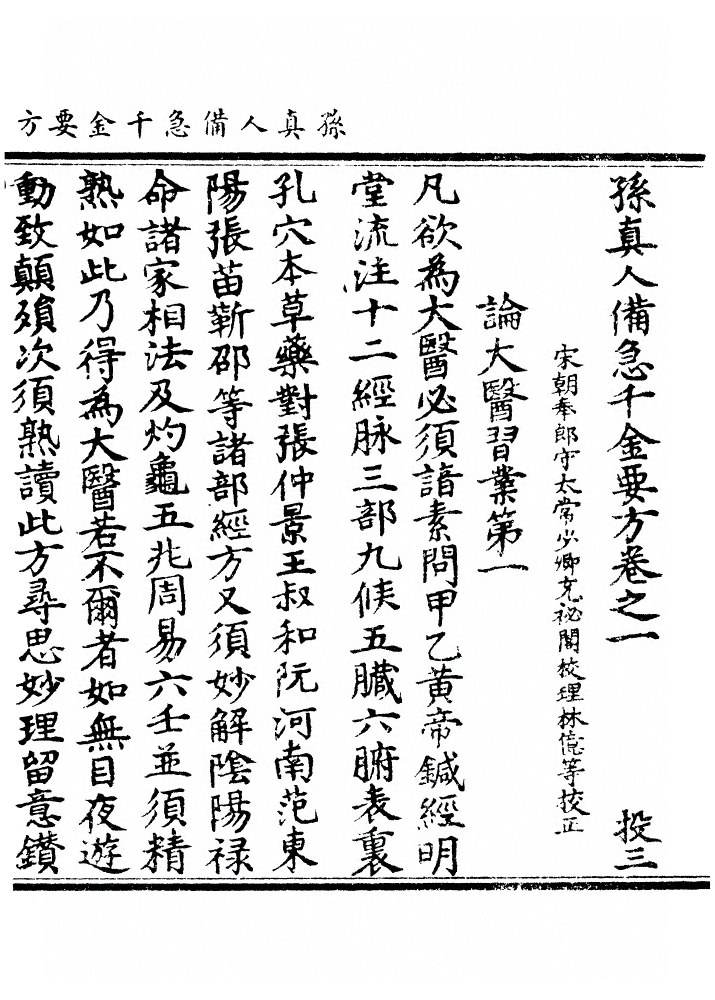 孫真人備急千金要方
孫真人備急千金要方卷之一 投三
宋朝奉郎守太常少卿充祕閣校理林億等挍正
論大醫習業第一
凡欲為大醫必須諳素問甲乙黄帝鍼經明
堂流注十二經脉三部九候五臓六腑表裏
孔穴本草藥對張仲景王叔和阮河南范東
陽張苗靳邵等諸部經方又須妙解陰陽禄
命諸家相法及灼龜五兆周易六壬並須精
熟如此乃得為大醫若不爾者如無目夜遊
動致顛殞次須熟讀此方尋思妙理留意鑽